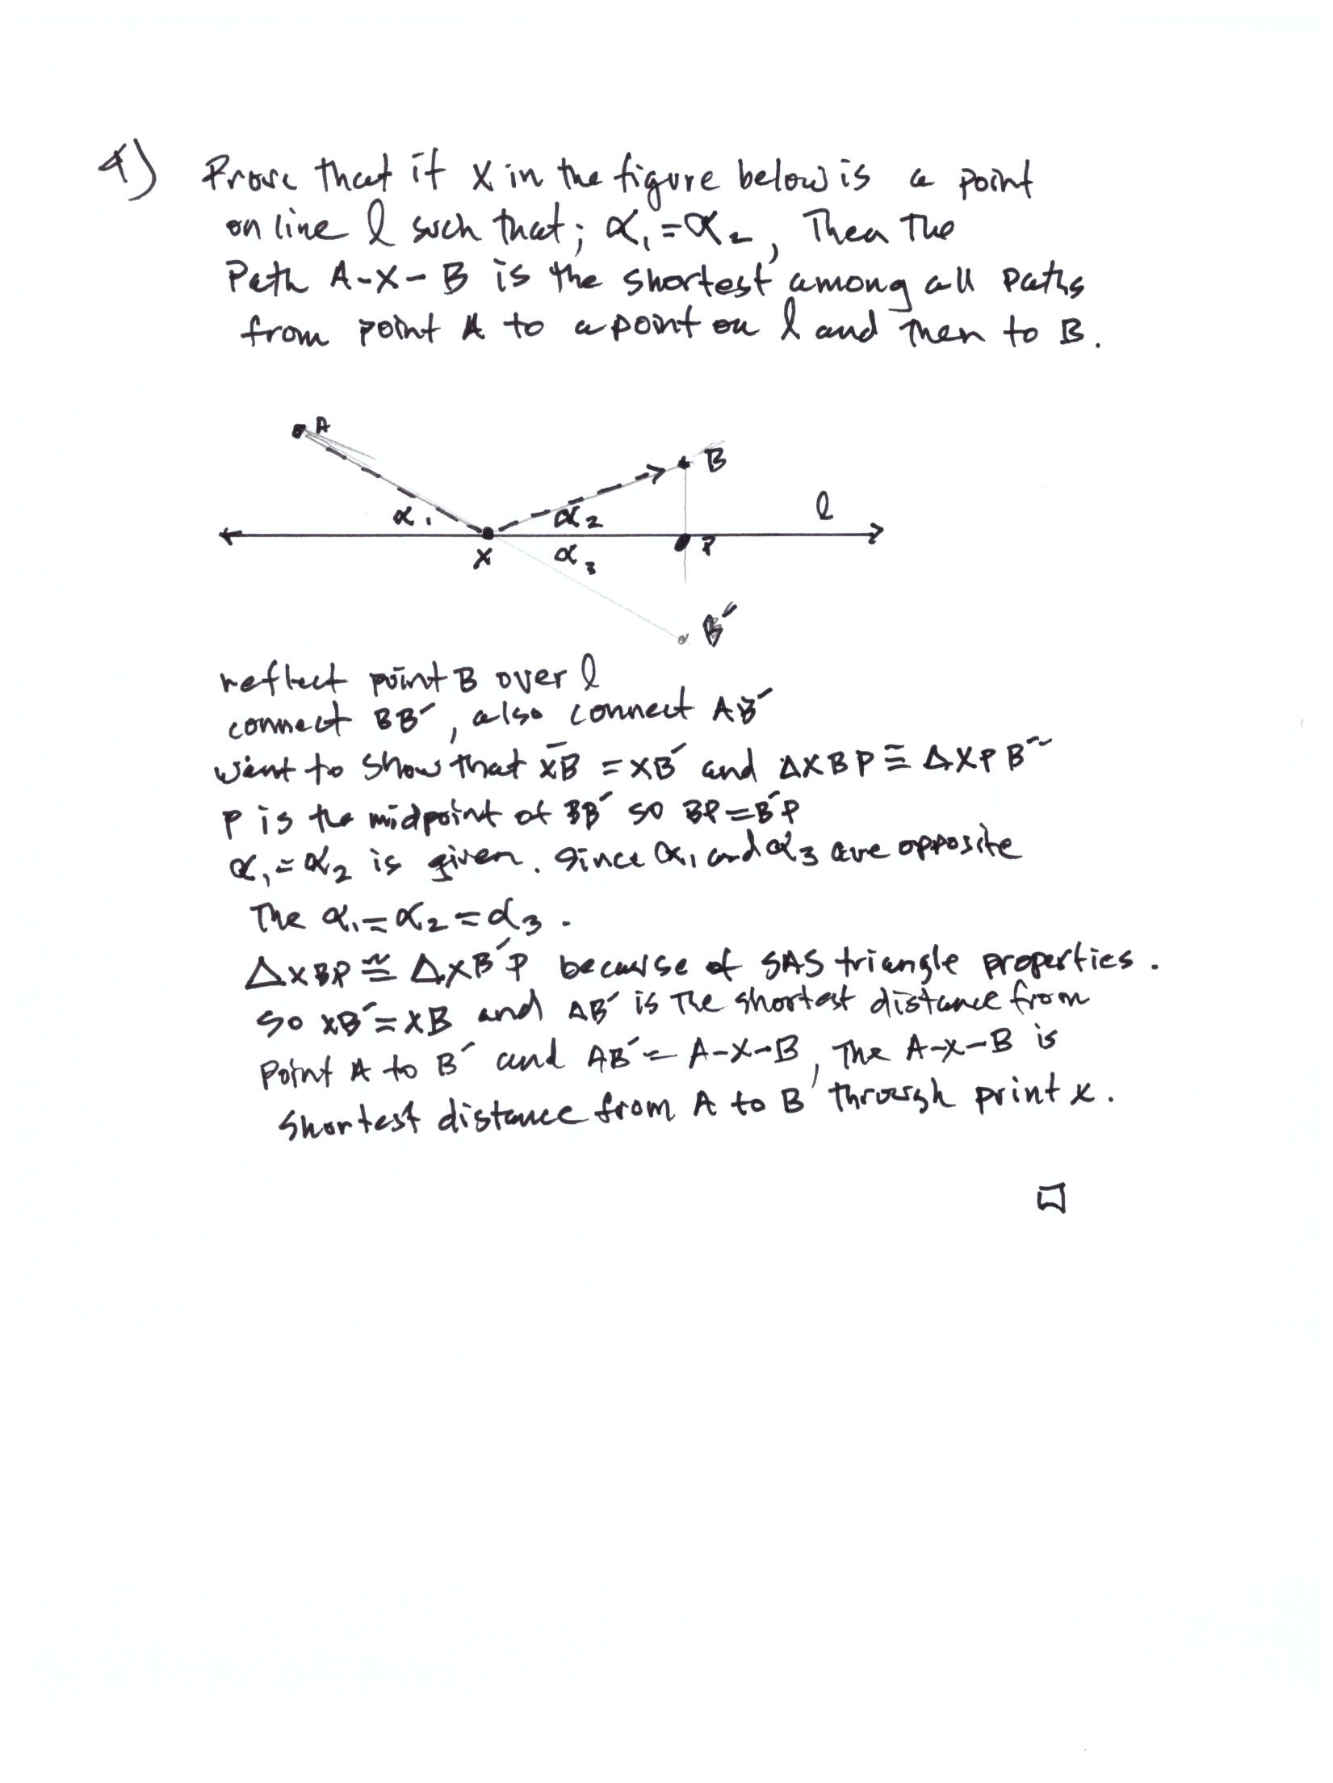 4) Prove that if X in the figure below is a point
on line l such that; α₁=α₂, Then the
Path A-X-B is the shortest among all paths
from point A to a point on l and then to B.
A
B
α₁
α₂
l
X
α₃
P
B´
reflect point B over l
connect BB´, also connect AB´
want to show that X̅B̅ = XB´ and ΔXBP ≅ ΔXPB´
P is the midpoint of BB´ so BP=B´P
α₁=α₂ is given. Since α₁ and α₃ are opposite
The α₁=α₂=α₃.
ΔXBP ≅ ΔXB´P because of SAS triangle properties.
So XB´=XB and AB´ is The shortest distance from
Point A to B´ and AB´= A-X-B, The A-X-B is
Shortest distance from A to B through print x.